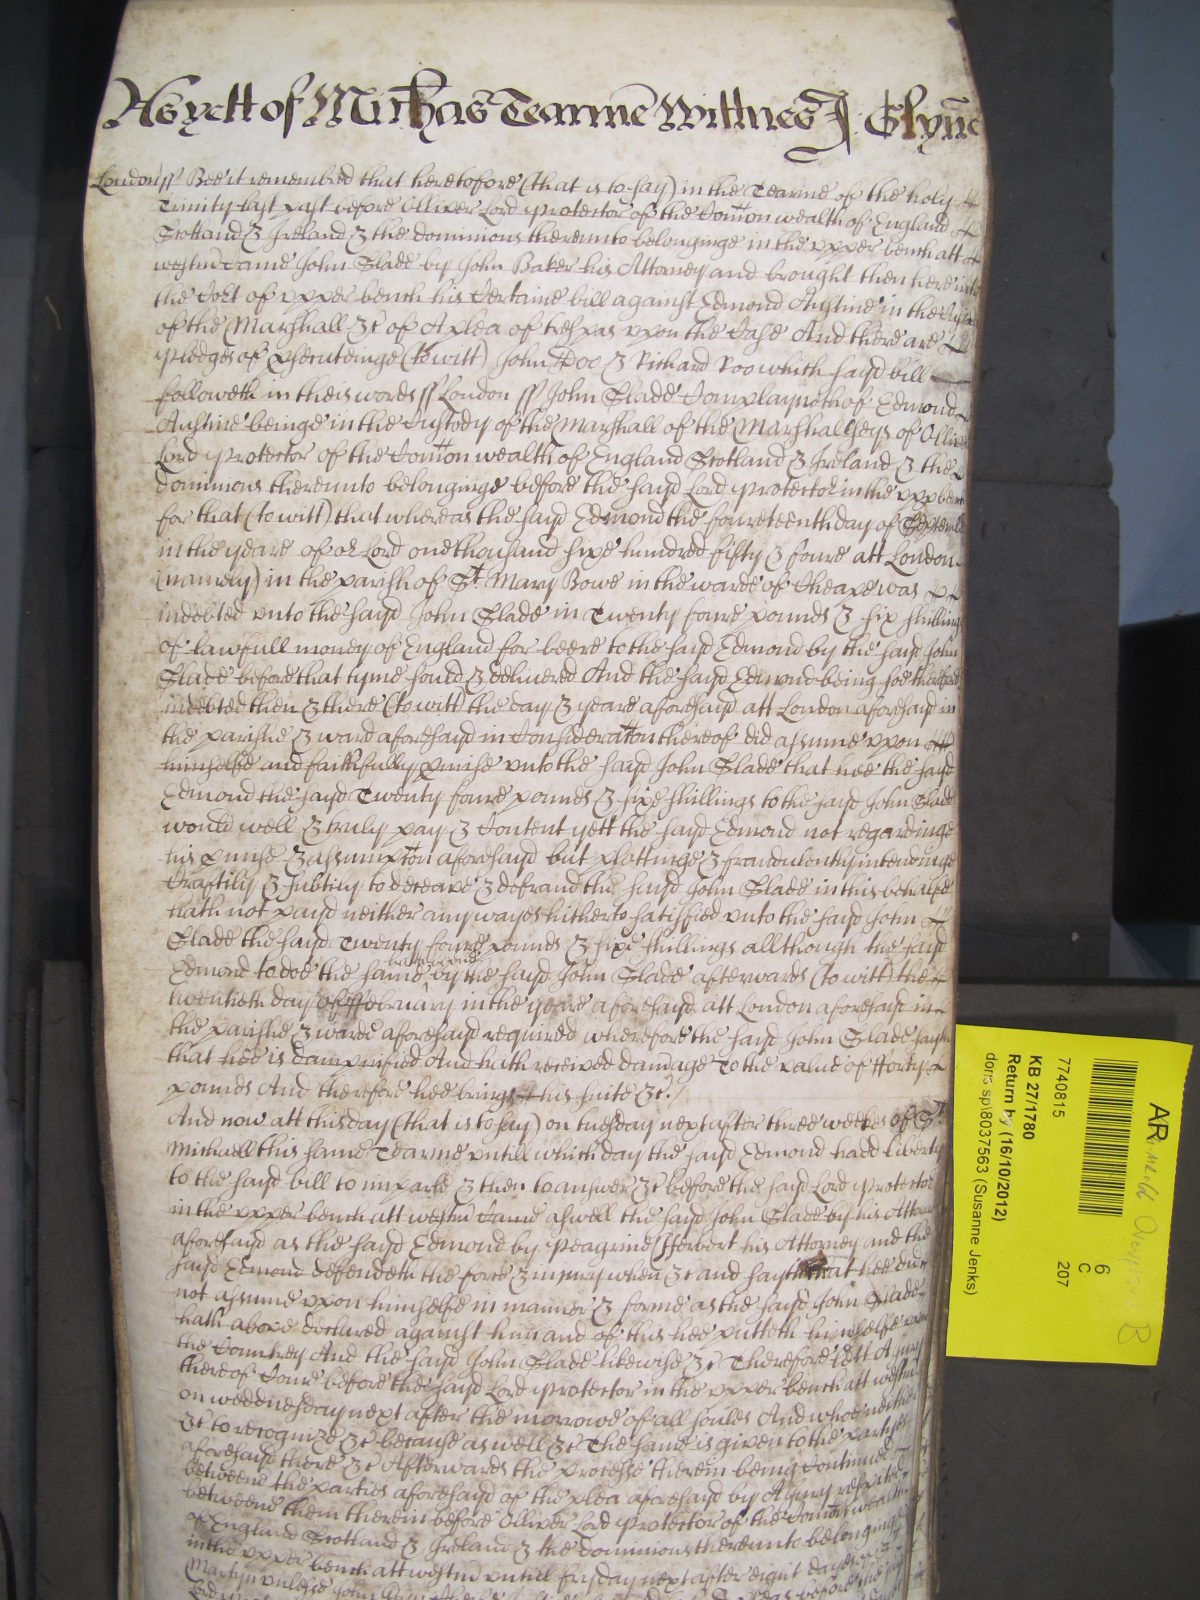 As yett of Michas Tearme Wittnes J. Glynne
London ss Bee it remembred that heretofore (that is to say) in the Tearme of the holy
Trinity last past before Olliver Lord Protector of the Comon wealth of England
Scotland & Ireland & the dominions thereunto belonginge in the upper bench att
westm Came John Slade by John Baker his Attorney and brought then here into
the Cort of upper bench his Certaine bill against Edmond Austine in the
of the Marshall &c of A plea of trespas upon the Case And there are
pledges of prosecuteinge (to witt) John Doo & Richard Roo which sayd bill
followeth in theis words ss London ss John Slade Complayneth of Edmond
Austine beinge in the Custody of the Marshall of the Marshallseys of Olliver
Lord protector of the Comon wealth of England Scotland & Ireland & the
dominions thereunto belonginge before the sayd Lord protector in the upp bench
for that (to witt) that whereas the sayd Edmond the foureteenth day of
in the yeare of or Lord one thousand sixe hundred fifty & foure att London
(namely) in the parish of St. Mary Bowe in the warde of Cheape was
indebted unto the sayd John Slade in Twenty foure pounds & six shillings
of lawfull money of England for beere to the sayd Edmond by the sayd John
Slade before that tyme sould & delivered And the sayd Edmond being soe thereof
indebted then & there (to witt) the day & yeare aforesayd att London aforesayd in
the parishe & ward aforesayd in Consideracon thereof did assume upon
himselfe and faithfully pmise unto the sayd John Slade that hee the sayd
Edmond the sayd Twenty foure pounds & sixe shillings to the sayd John Slade
would well & truly pay & Content yett the sayd Edmond not regardinge
his pmise & assumpcon aforesayd but plottinge & fraudulently intendinge
Craftily & subtily to deceave & defraud the sayd John Slade in this behalfe
hath not payd neither any wayes hitherto satisfied unto the sayd John
Slade the sayd Twenty foure pounds & sixe shillings allthough the sayd
Edmond to doe the same by the sayd John Slade afterwards (to witt) the
twentieth day of ffebruary in the yeare aforesayd att London aforesayd in
the parishe & warde aforesayd required wherefore the sayd John Slade sayth
that hee is dampnified And hath received damage To the value of fforty
pounds And therefore hee brings his suite &c.
And now att this day (that is to say) on tuesday next after three weekes of St
Michaell this same Tearme untill which day the sayd Edmond hadd liberty
to the sayd bill to imparle & then to answer &c before the sayd Lord protector
in the upper bench att westm Came aswell the sayd John Slade by his Attorn
aforesayd as the sayd Edmond by Peagrine Herbert his Attorney and the
sayd Edmond defendeth the force & injury when &c and sayth that hee did
not assume upon himselfe in manner & forme as the sayd John Slade
hath above declared against him and of this hee putteth himselfe upon
the Countrey And the sayd John Slade likewise &c Therefore lett A jury
thereof Come before the sayd Lord protector in the upper bench att westm
on weddensday next after the morrowe of all soules And whoe neither
&c to recognize &c because aswell &c The same is given to the partyes
aforesayd there &c Afterwards the processe therein being Continued
betweene the parties aforesayd of the plea aforesayd by A jury respited
betweene them therein before Olliver Lord protector of the Comon wealth
of England Scotland & Ireland & the dominions thereunto belonginge
in the upper bench att westm untill fryday next after eight dayes of St
Martyn unlesse John
AR
6
C
207
7740815
KB 27/1780
Return by (16/10/2012)
(Susanne Jenks)